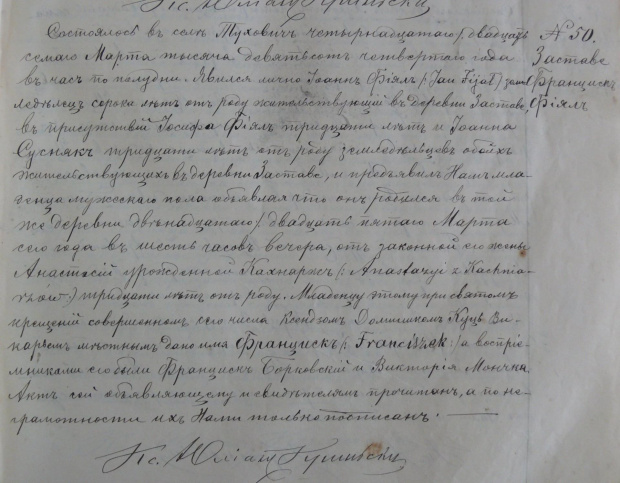 Кс. Юліанъ
№ 50.
Заставе
Францискъ
Фіялъ
Состоялось въ селѣ Туховичъ четырнадцатаго /двадцать
седмаго Марта тысяча девятьсотъ четвертаго года
въ часъ по полудни. Явился лично Іоаннъ Фіялъ /: Jan Fijał :/ зем-
ледѣлецъ сорока лѣтъ отъ роду жительствующій въ деревни Заставе,
въ присутствіи Іосифа Фіялъ тридцати лѣтъ и Іоанна
Сусникъ тридцати лѣтъ отъ роду земледѣльцевъ обоихъ
жительствующихъ въ деревни Заставе, и предъявилъ Намъ мла-
денца мужескаго пола объявляя что онъ родился въ той
же деревни двѣнадцатаго /двадцать пятаго Марта
сего года въ шесть часовъ вечера, отъ законной его жены
Анастасіи урожденной Кахнаржъ /: Anastazyi z Kachnia-
rzów :/ тридцати лѣтъ отъ роду. Младенцу этому при святомъ
крещеніи совершенномъ сего числа Ксендзомъ Доминикомъ Куць Ви-
каріемъ мѣстнымъ дано имя Францискъ /: Franciszek :/ а воспріе-
мниками его были Францискъ Борковскій и Викторія Мончка.
Актъ сей объявляющему и свидѣтелямъ прочитанъ, а по не-
грамотности ихъ Нами только подписанъ.
Кс. Юліанъ